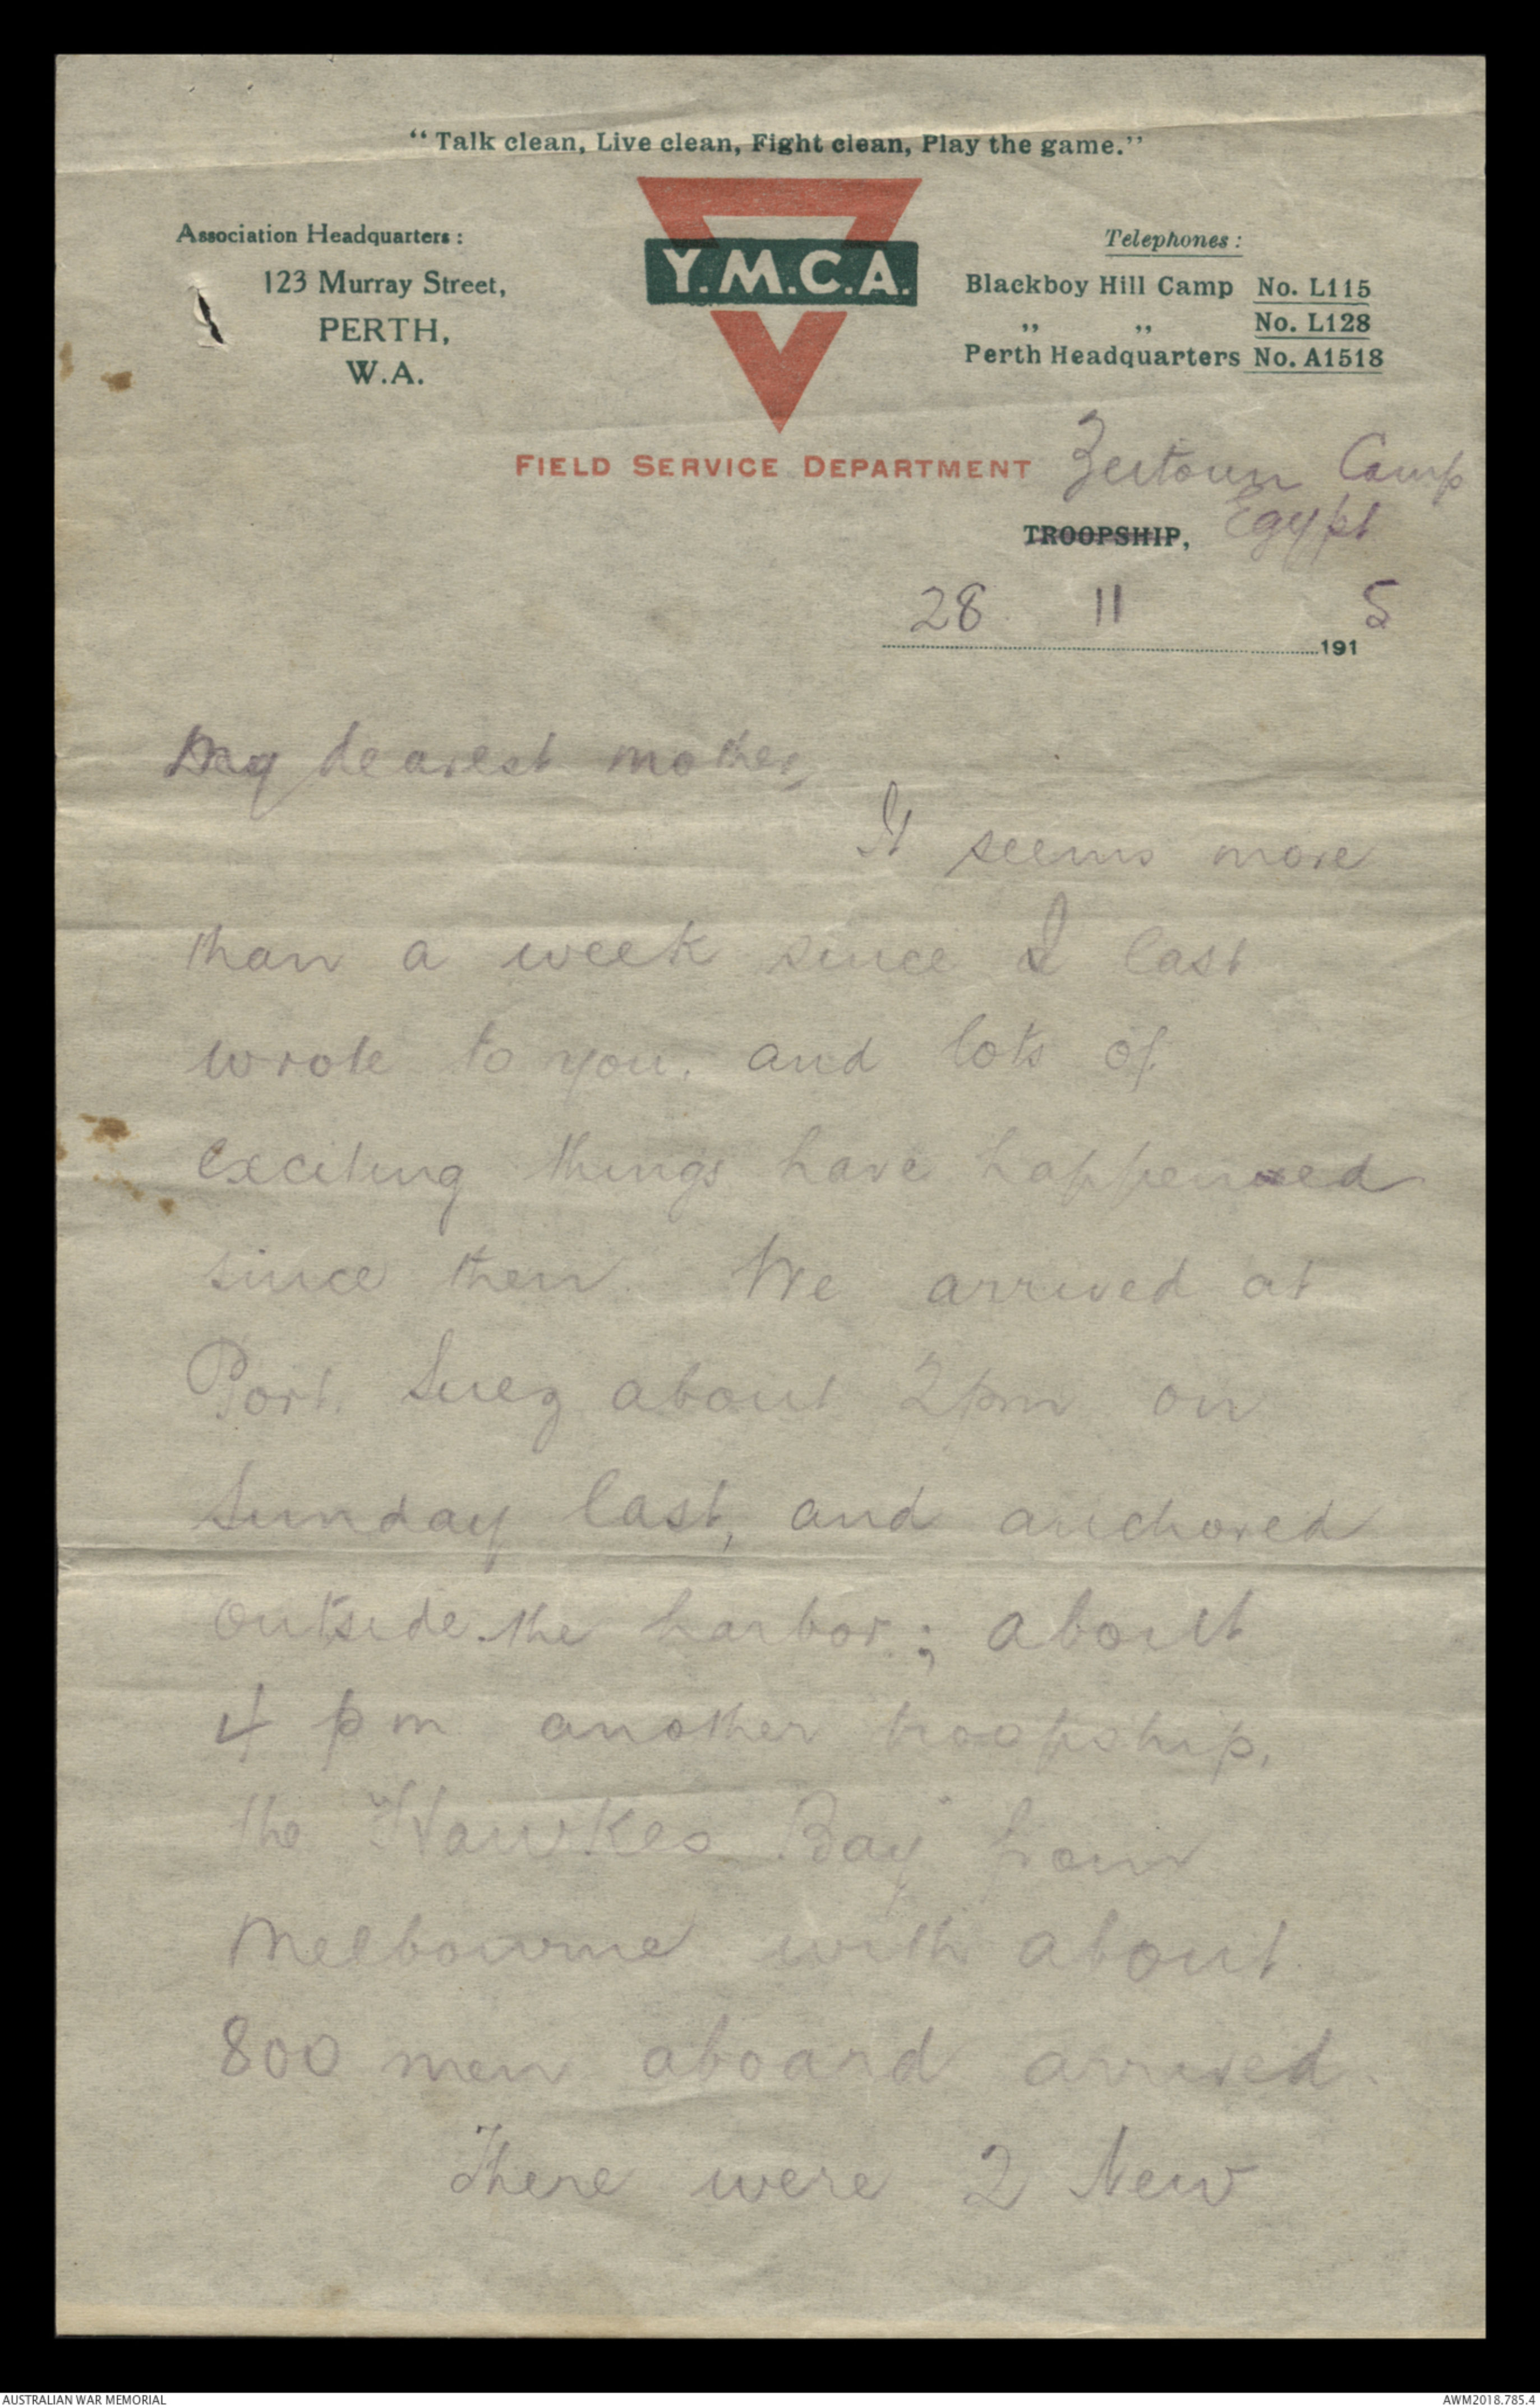 "Talk clean, Live clean, Fight clean, Play the game."
Association Headquarters:
123 Murray Street,
PERTH,
W.A.
Y.M.C.A.
Telephones:
Blackboy Hill Camp No. L115
" " No. L128
Perth Headquarters No. A1518
FIELD SERVICE DEPARTMENT Zeitoun Camp
TROOPSHIP, Egypt
28 11 1915
My dearest mother,
It seems more
than a week since I last
wrote to you. and lots of
exciting things have happened
since then. We arrived at
Port Suez about 2pm on
Sunday last, and anchored
outside the harbor; about
4 pm another troopship,
the "Hawkes Bay" from
Melbourne with about
800 men aboard arrived.
There were 2 New
AUSTRALIAN WAR MEMORIAL
AWM2018.785.4